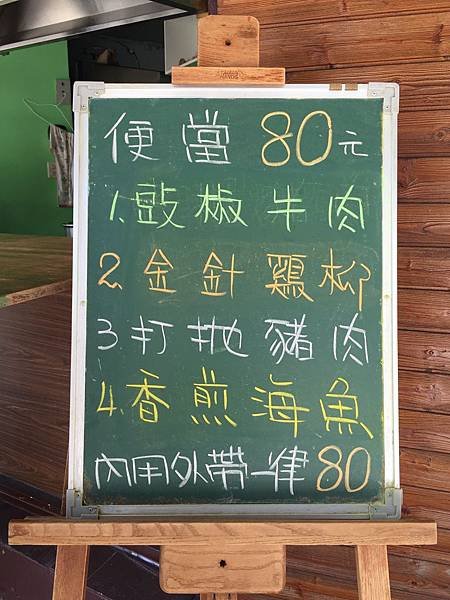 便當80元
1.豉椒牛肉
2.金針鷄柳
3打拋豬肉
4.香煎海魚
內用外帶一律80